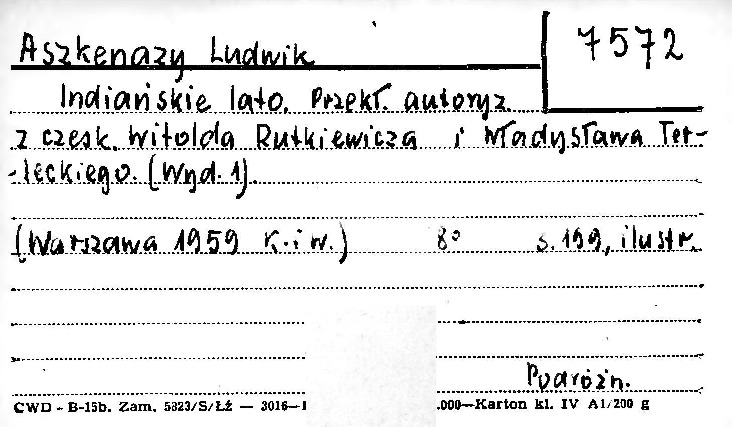 Aszkenazy Ludwik
7572
Indiańskie lato. Przekł. autoryz.
z czesk. Witolda Rutkiewicza i Władysława Ter-
-leckiego. (Wyd. 1).
(Warszawa 1959 K. i W.) 8° s. 199, ilustr.
Podróżn.
CWD - B-15b. Zam. 5823/S/Łź — 3016—1 .000—Karton kl. IV A1/200 g